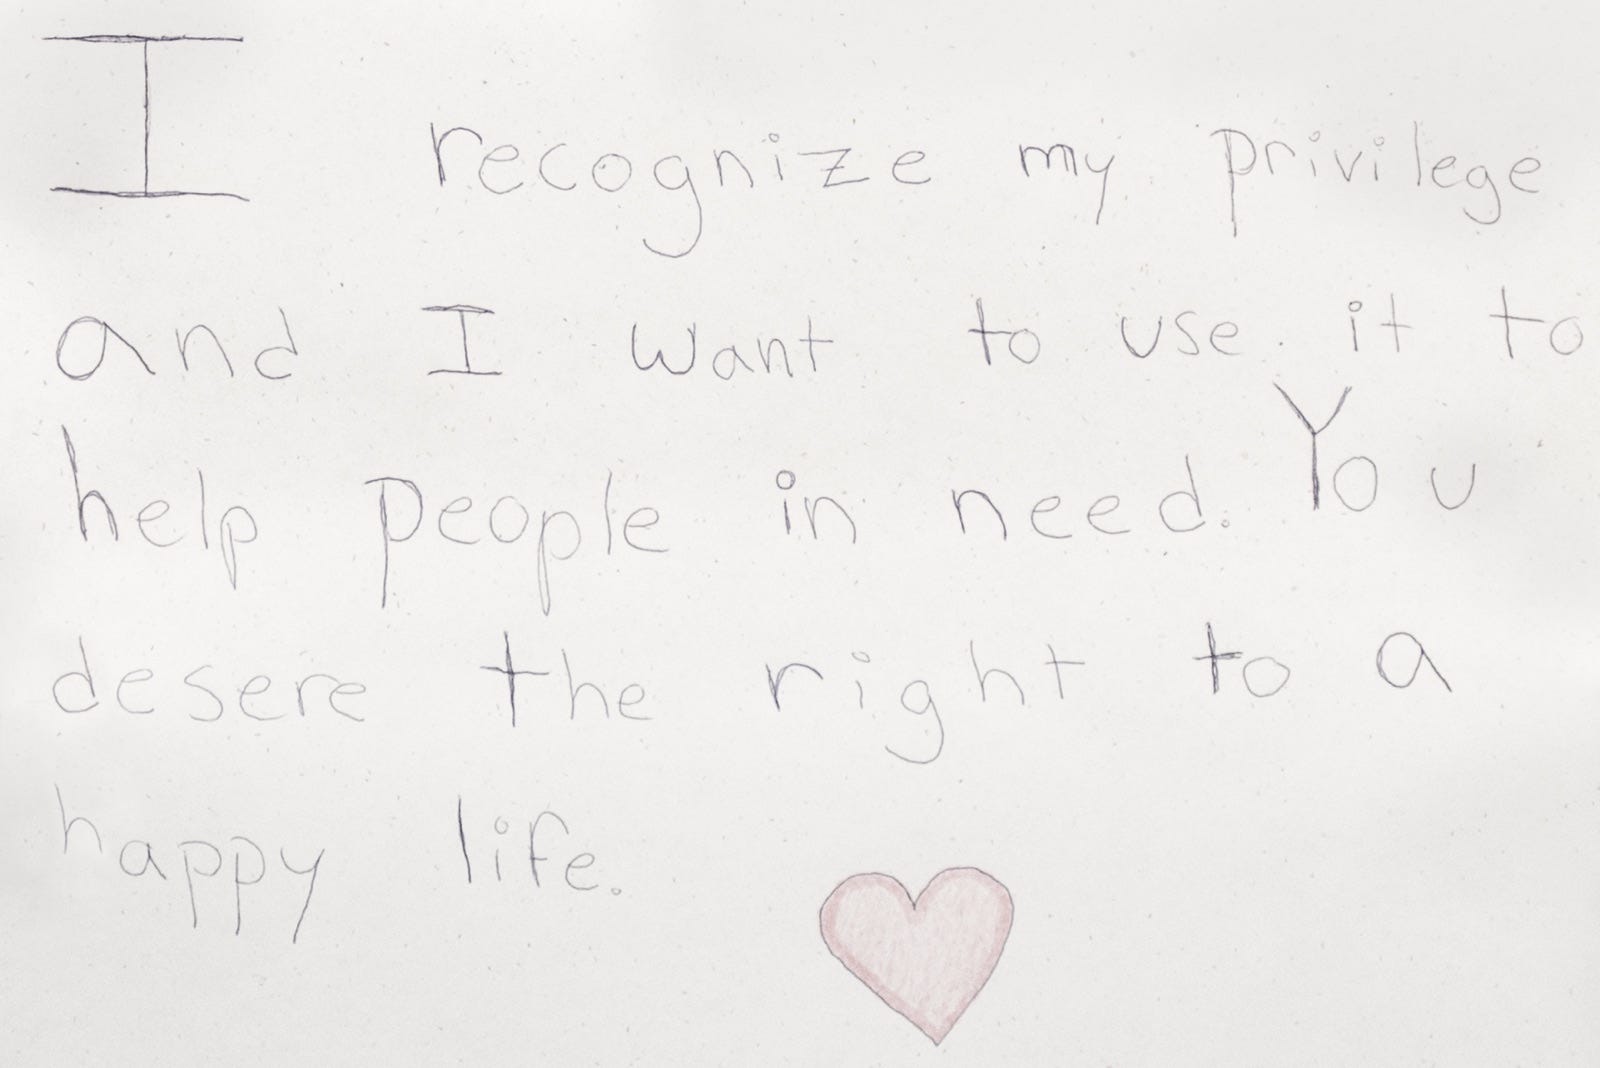 I recognize my privilege
and I want to use it to
help people in need. You
desere the right to a
happy life.